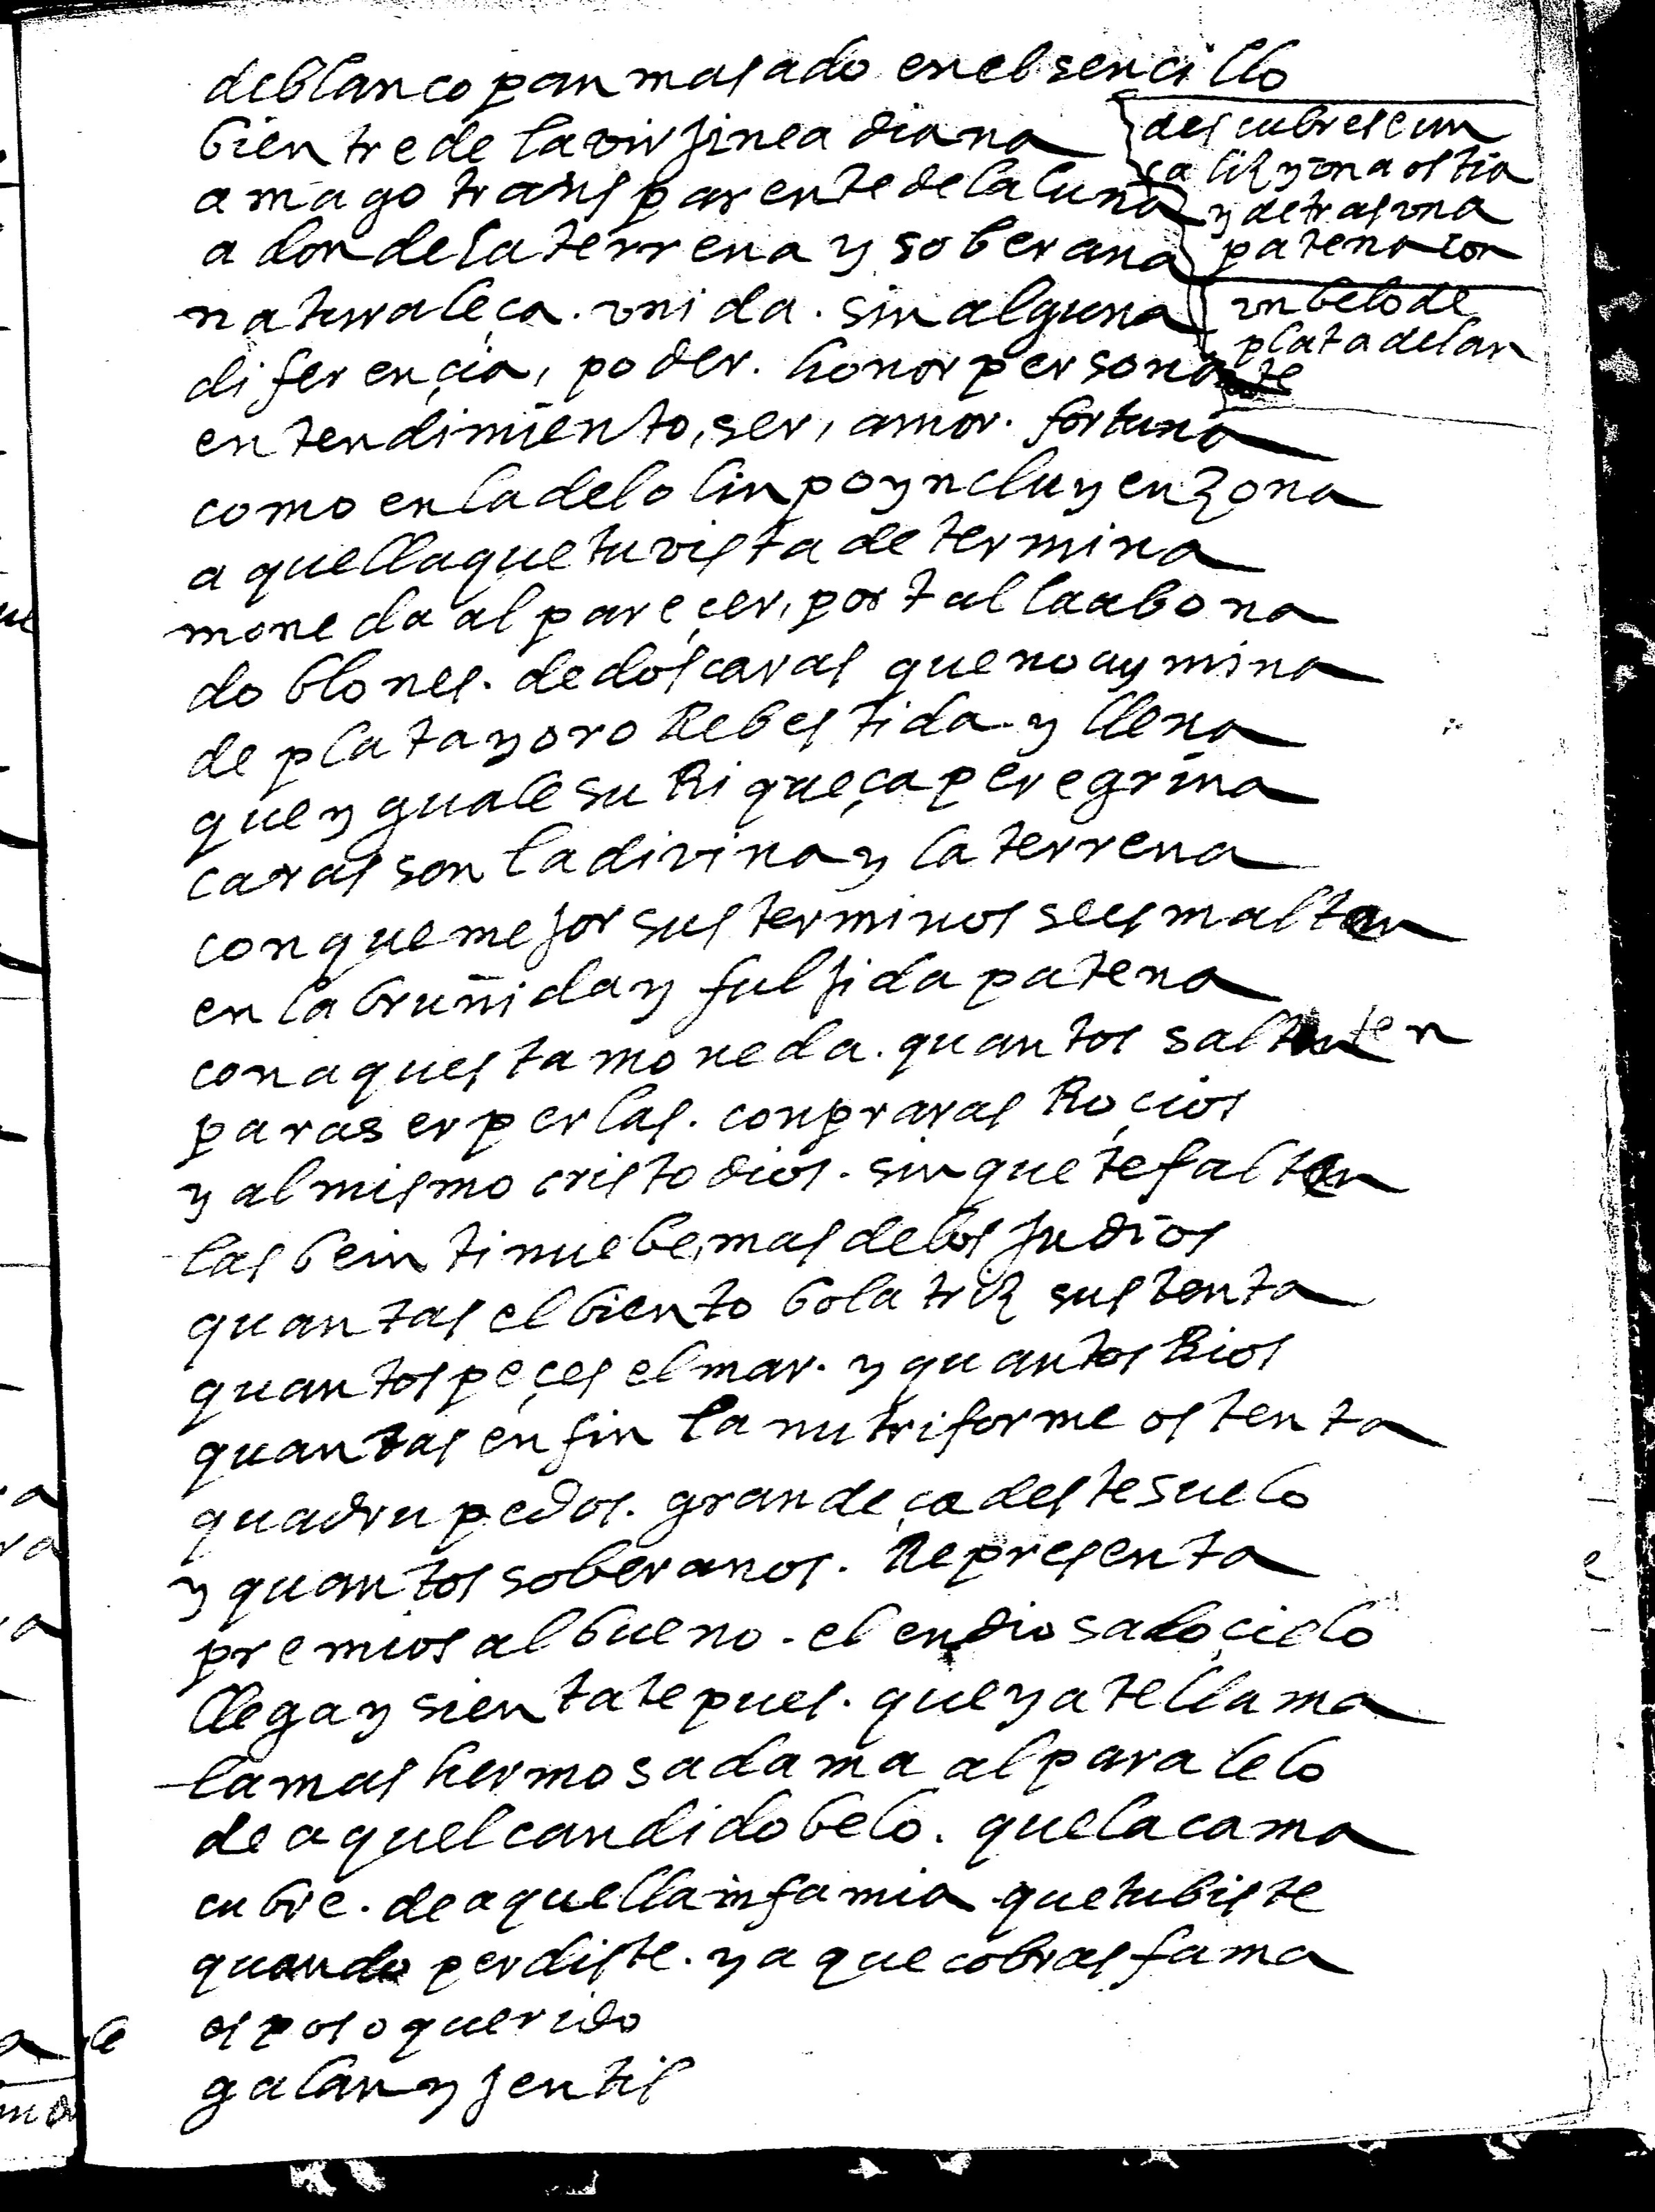 de blanco pan masado en el sencillo
bientre de la virjinea diana
amago transparente de la luna
a donde la terrena y soberana
naturaleça. vnida. sin alguna
diferençia, poder. honor persona
entendimiento, ser, amor. fortuna
como en la del olinpo yncluyen zona
aquella que tu vista determina
moneda al pareçer, por tal la abona
doblones. de dos caras que no ay mina
de plata y oro Rebestida y llena
que yguale su Riqueça peregrina
caras son la divina y la terrena
con que mejor sus terminos se esmaltan
en la bruñida y fuljida patena
con aquesta moneda. quantos salten
para ser perlas. conpraras Roçios
y al mismo cristo dios. sin que te falten
las beintinuebe, mas de los judios
quantas el biento bolatriz sustenta
quantos peçes el mar. y quantos Rios
quantas en fin la nutriforme ostenta
quadrupedos. grandeça deste suelo
y quantos soberanos. Representa
premios al bueno. el endiosado çielo
llega y sientate pues. que ya te llama
la mas hermosa dama al paralelo
de aquel candido belo. que la cama
cubre. de aquella infamia que tubiste
quando perdiste. ya que cobras fama
esposo querido
galan y jentil
descubrese un
caliz y vna ostia
y detras vna
patena con
vn belo de
plata delan
te